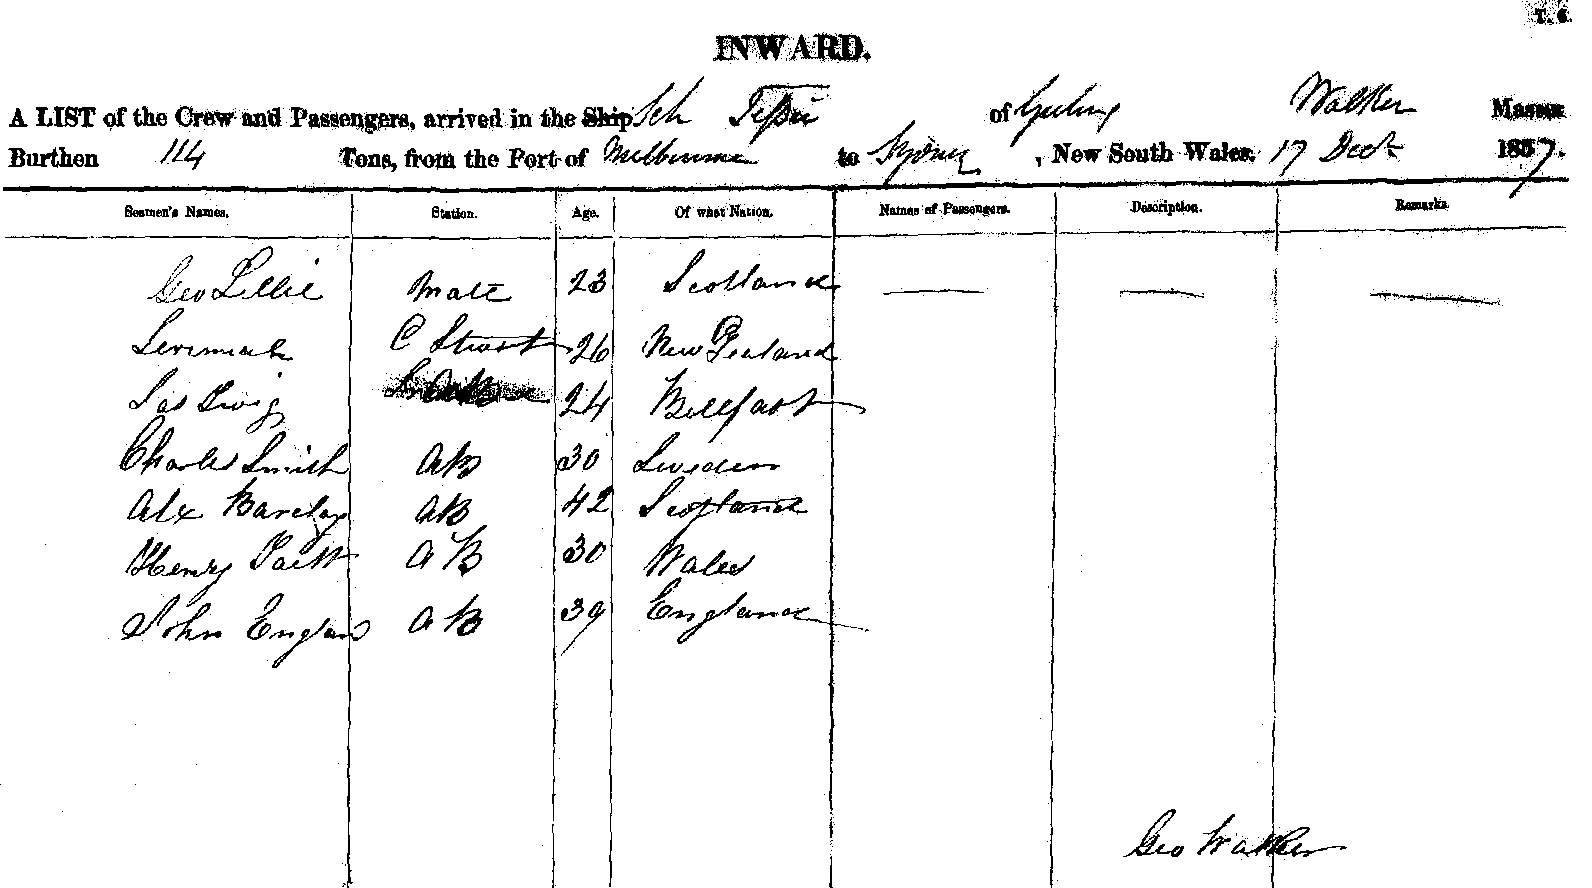 T. 6.
INWARD.
A LIST of the Crew and Passengers, arrived in the Ship Sch of Geelong Walker Master
Burthen 114 Tons, from the Port of Melbourne to Sydney, New South Wales, 17 Decr 1857.
Seamen's Names. Station. Age. Of what Nation. Names of Passengers. Description. Remarks.
Geo Lillie Mate 23 Scotland
Jeremiah C Steward 26 New Zealand
Jas 24 Bellfast
Charles Smith AB 30 Sweden
Alex Barclay AB 42 Scotland
Henry AB 30 Wales
John England AB 39 England
Geo Walker